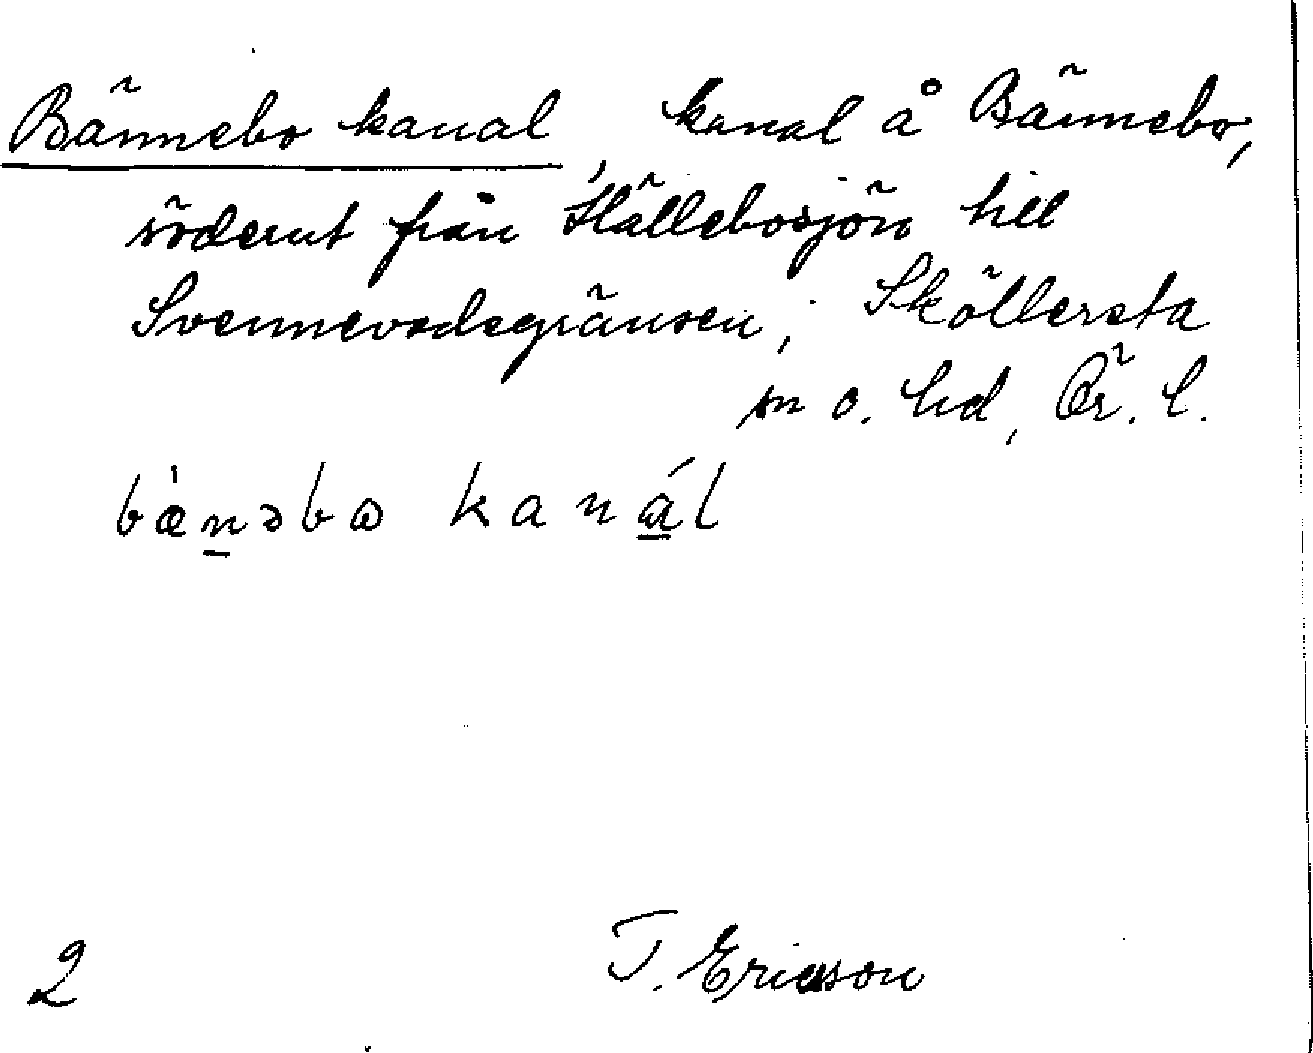 Bännebo kanal, kanal å Bännebo,
söderut från Hällebosjön till
Svennevadsgränsen; Sköllersta
sn o. hd, Ör. l.
bæ̀nəbɷ kanál
2 T. Ericsson